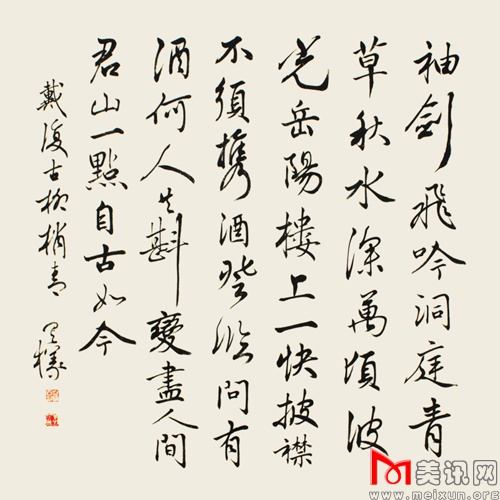 袖劍飛吟洞庭青
草秋水深萬頃波
光岳陽樓上一快披襟
不須携酒登臨問有
酒何人共斟變盡人間
君山一點自古如今
戴復古柳梢青
美讯网
www.meixun.org